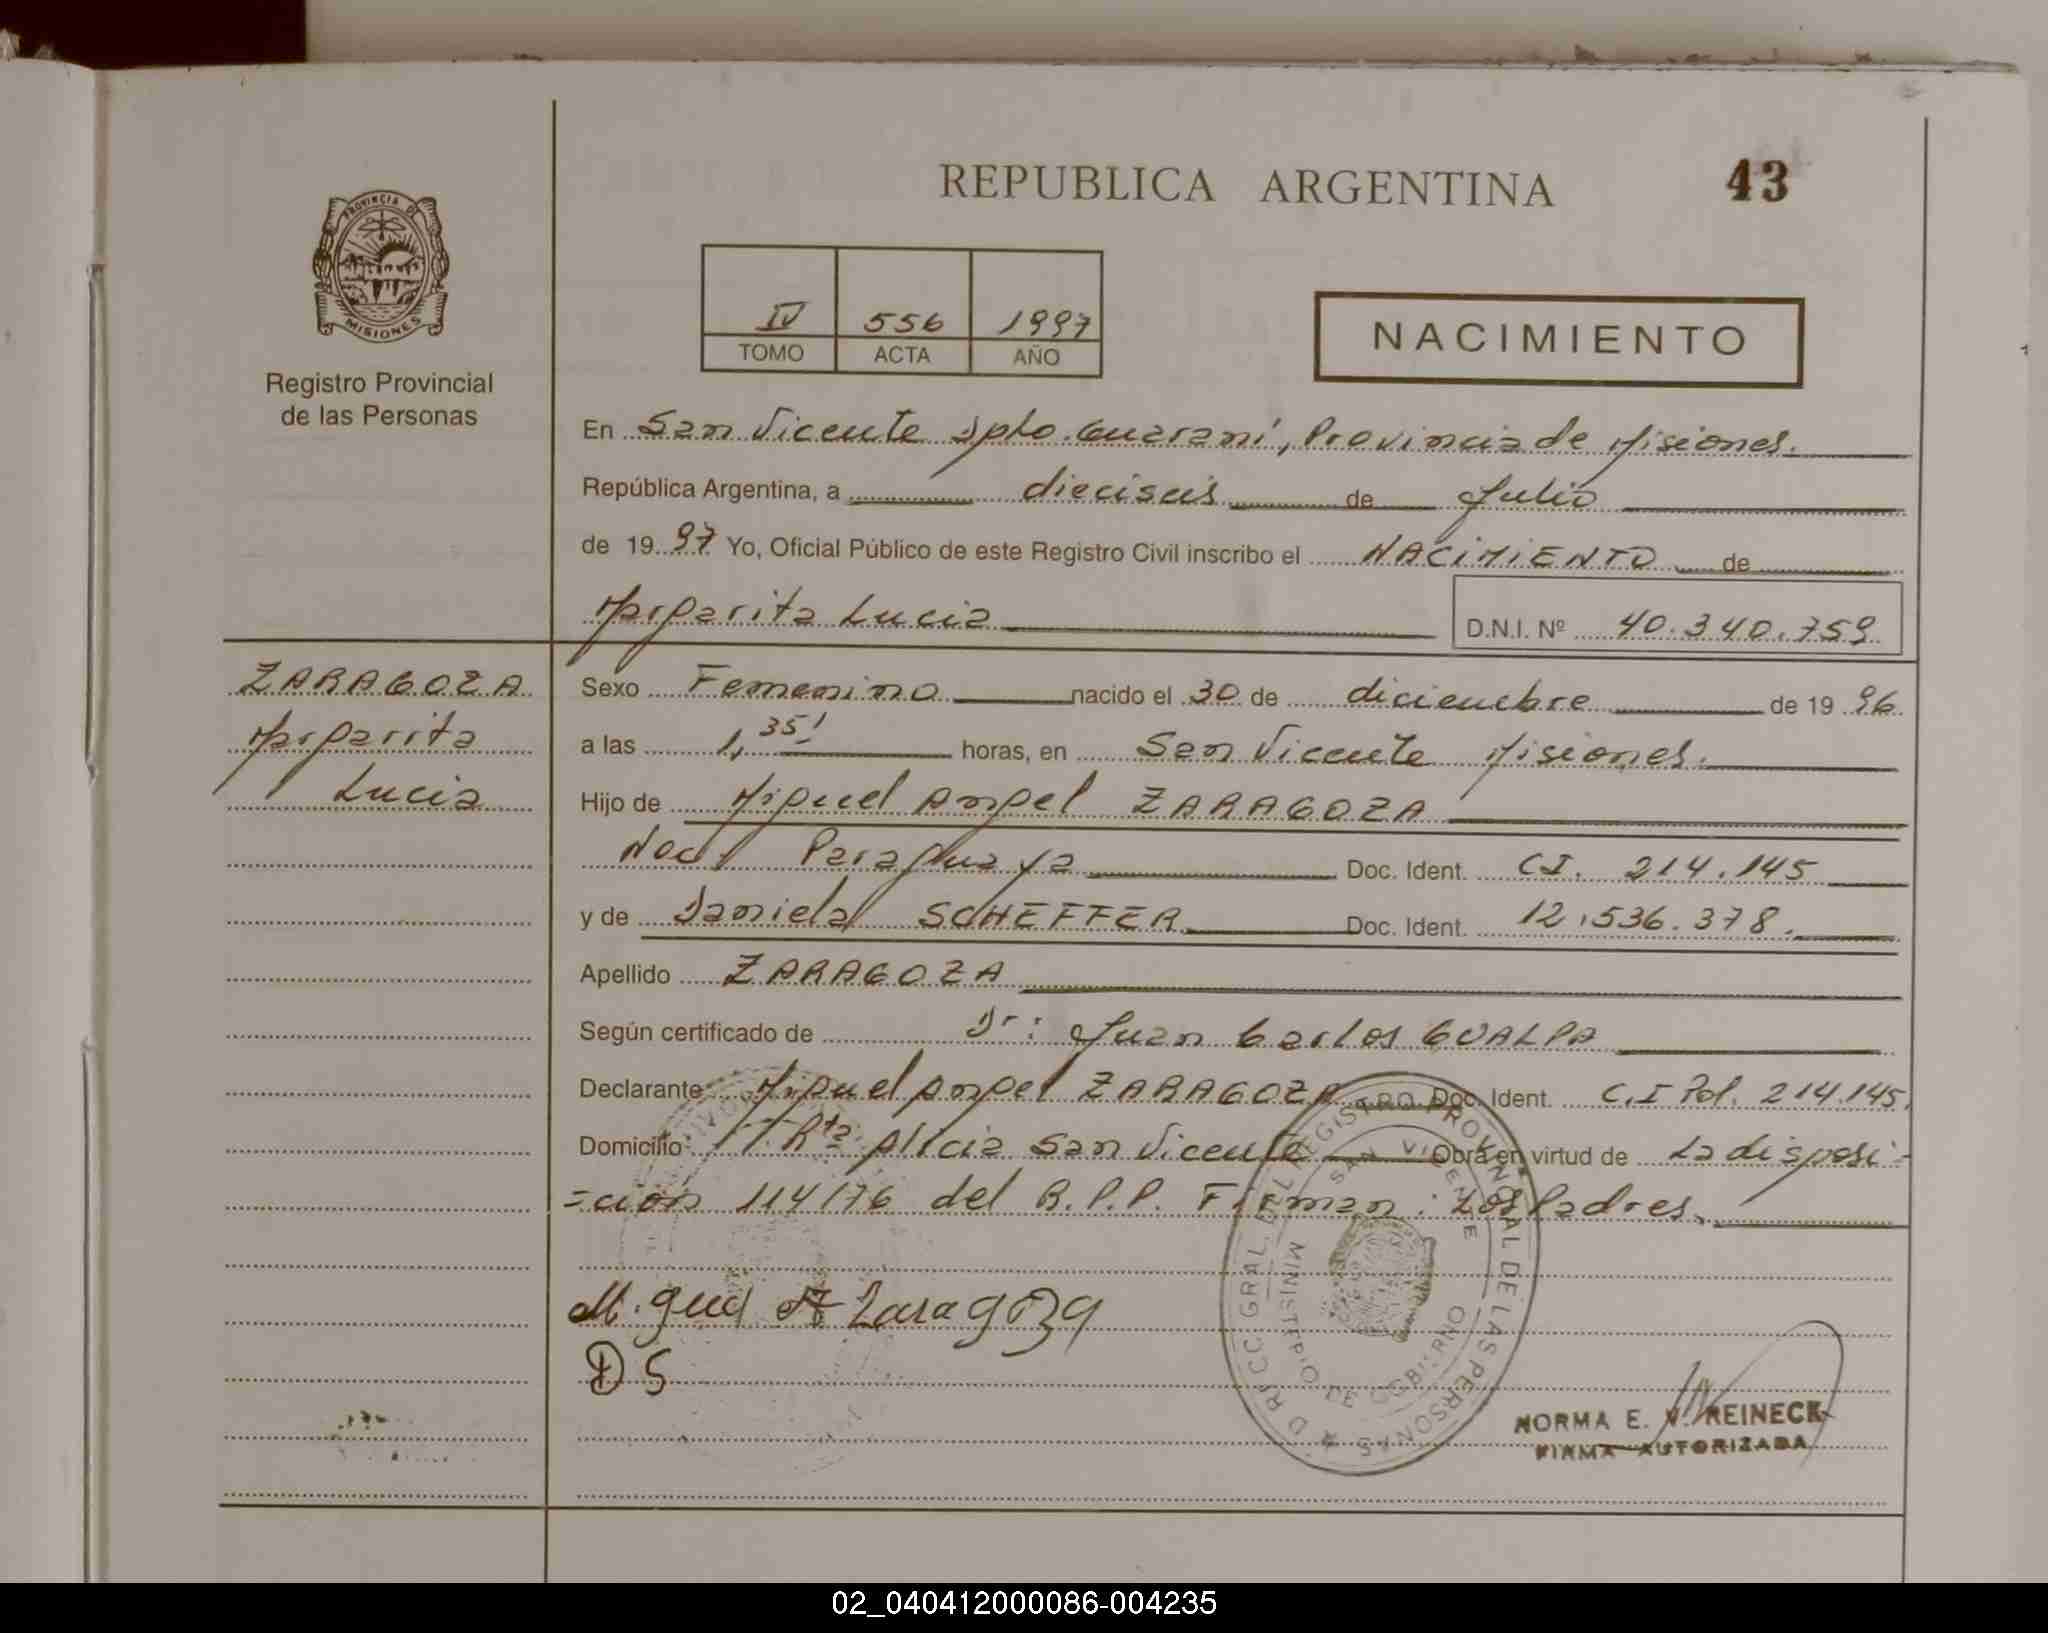 REPUBLICA ARGENTINA
43
PROVINCIA DE
MISIONES
Registro Provincial
de las Personas
IV 556 1997
TOMO ACTA AÑO
NACIMIENTO
En San Vicente Dpto. Guaraní, Provincia de Misiones.
República Argentina, a dieciseis de Julio
de 1997 Yo, Oficial Público de este Registro Civil inscribo el NACIMIENTO de
Margarita Lucia
D.N.I. Nº 40.340.759
ZARAGOZA
Margarita
Lucia
Sexo Femenino nacido el 30 de diciembre de 1996
a las 1,35' horas, en San Vicente Misiones.
Hijo de Miguel Angel ZARAGOZA
Nac Paraguaya Doc. Ident. CI. 214.145
y de Daniela SCHEFFER Doc. Ident. 12.536.378.
Apellido ZARAGOZA
Según certificado de Dr: Juan Carlos GUALPA
Declarante Miguel Angel ZARAGOZA Doc. Ident. C.I Pol. 214.145.
Domicilio Rta Alicia San Vicente Obra en virtud de La disposi-
=ción 114/76 del R.P.P. Firman: Los Padres.
Miguel A Zaragoza
D S
REGISTRO PROVINCIAL DE LAS PERSONAS
SAN VICENTE
MINISTERIO DE GOBIERNO
NORMA E. V. REINECK
FIRMA AUTORIZADA
02_040412000086-004235